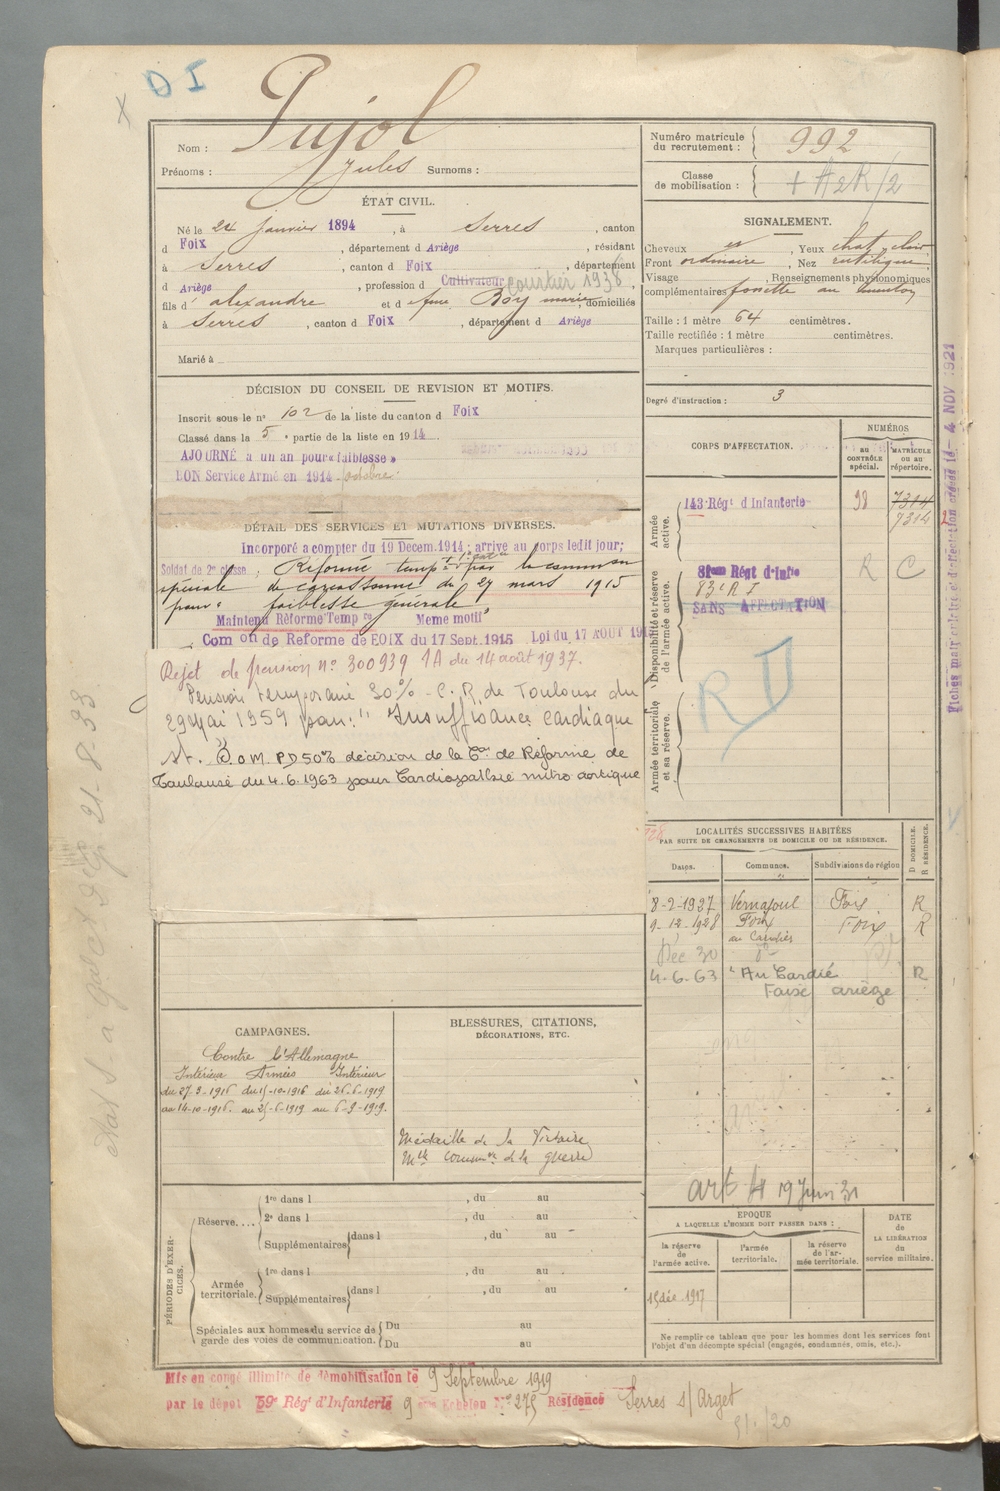 D I
Nom : Pujol
Prénoms : Jules Surnoms :
Numéro matricule du recrutement : 992
Classe de mobilisation :
ÉTAT CIVIL.
Né le 24 janvier 1894, à Serres, canton
d Foix, département d Ariège, résidant
à Serres, canton d Foix, département
d Ariège, profession d Cultivateur courtier 1938,
fils d' alexandre et d Roy marie, domiciliés
à Serres, canton d Foix, département d Ariège
Marié à
SIGNALEMENT.
Cheveux, Yeux chat. clair
Front ordinaire, Nez rectiligne
Visage, Renseignements physionomiques
complémentaires fossette au menton
Taille : 1 mètre 64 centimètres.
Taille rectifiée : 1 mètre centimètres.
Marques particulières :
Degré d'instruction : 3
DÉCISION DU CONSEIL DE REVISION ET MOTIFS.
Inscrit sous le n° 102 de la liste du canton d Foix
Classé dans la 5e partie de la liste en 1914
AJOURNÉ à un an pour « faiblesse »
BON Service Armé en 1914 - octobre
DÉTAIL DES SERVICES ET MUTATIONS DIVERSES.
Incorporé a compter du 19 Decem. 1914 ; arrivé au corps ledit jour;
Soldat de 2e classe ; Réformé temp par la common
spéciale de carcassonne du 27 mars 1915
pour " faiblesse générale "
Maintenu Réforme Temp re Meme motif
Com on de Reforme de FOIX du 17 Sept. 1915 Loi du 17 AOUT 191
Rejet de pension n° 300939 1A du 14 août 1937.
Pension temporaire 30% - C. R. de Toulouse du
29 Mai 1959 pour : " Insuffisance cardiaque
P D 50% décision de la Con de Réforme de
Toulouse du 4.6.1963 pour Cardiopathie mitro aortique
CORPS D'AFFECTATION.
NUMÉROS
au CONTRÔLE spécial.
MATRICULE ou au répertoire.
Armée active.
143 Régt d'Infanterie 98 7314
7314
Disponibilité et réserve de l'armée active.
81eme Régt d'Infie R C
83e R I
SANS AFFECTATION
Armée territoriale et sa réserve.
LOCALITÉS SUCCESSIVES HABITÉES
PAR SUITE DE CHANGEMENTS DE DOMICILE OU DE RÉSIDENCE.
D DOMICILE. R RÉSIDENCE.
Dates. Communes. Subdivisions de région
8-2-1927 Vernajoul Foix R
9-12-1928 Foix Foix R
Déc 30
4-6-63 "Au Cardié R
Foix ariège
art 4 19 Juin 31
CAMPAGNES.
Contre l'Allemagne
Intérieur Armées Intérieur
du 27-3-1916 du 15-10-1916 du 26-6-1919
au 14-10-1916. au 25-6-1919 au 6-9-1919.
BLESSURES, CITATIONS,
DÉCORATIONS, ETC.
Médaille de la Victoire
Mlle commve de la guerre
PÉRIODES D'EXERCICES.
Réserve....
1re dans l , du au
2e dans l , du au
Supplémentaires dans l , du au
Armée territoriale.
1re dans l , du au
Supplémentaires dans l , du au
Spéciales aux hommes du service de garde des voies de communication.
Du au
Du au
ÉPOQUE
A LAQUELLE L'HOMME DOIT PASSER DANS :
DATE de LA LIBÉRATION du service militaire.
la réserve de l'armée active. l'armée territoriale. la réserve de l'armée territoriale.
15 déc. 1917
Ne remplir ce tableau que pour les hommes dont les services font
l'objet d'un décompte spécial (engagés, condamnés, omis, etc.).
Mis en congé illimité de démobilisation le 9 Septembre 1919
par le dépot 59e Régt d'Infanterie 9 eme Echelon N° 275 Résidence Serres s/Arget